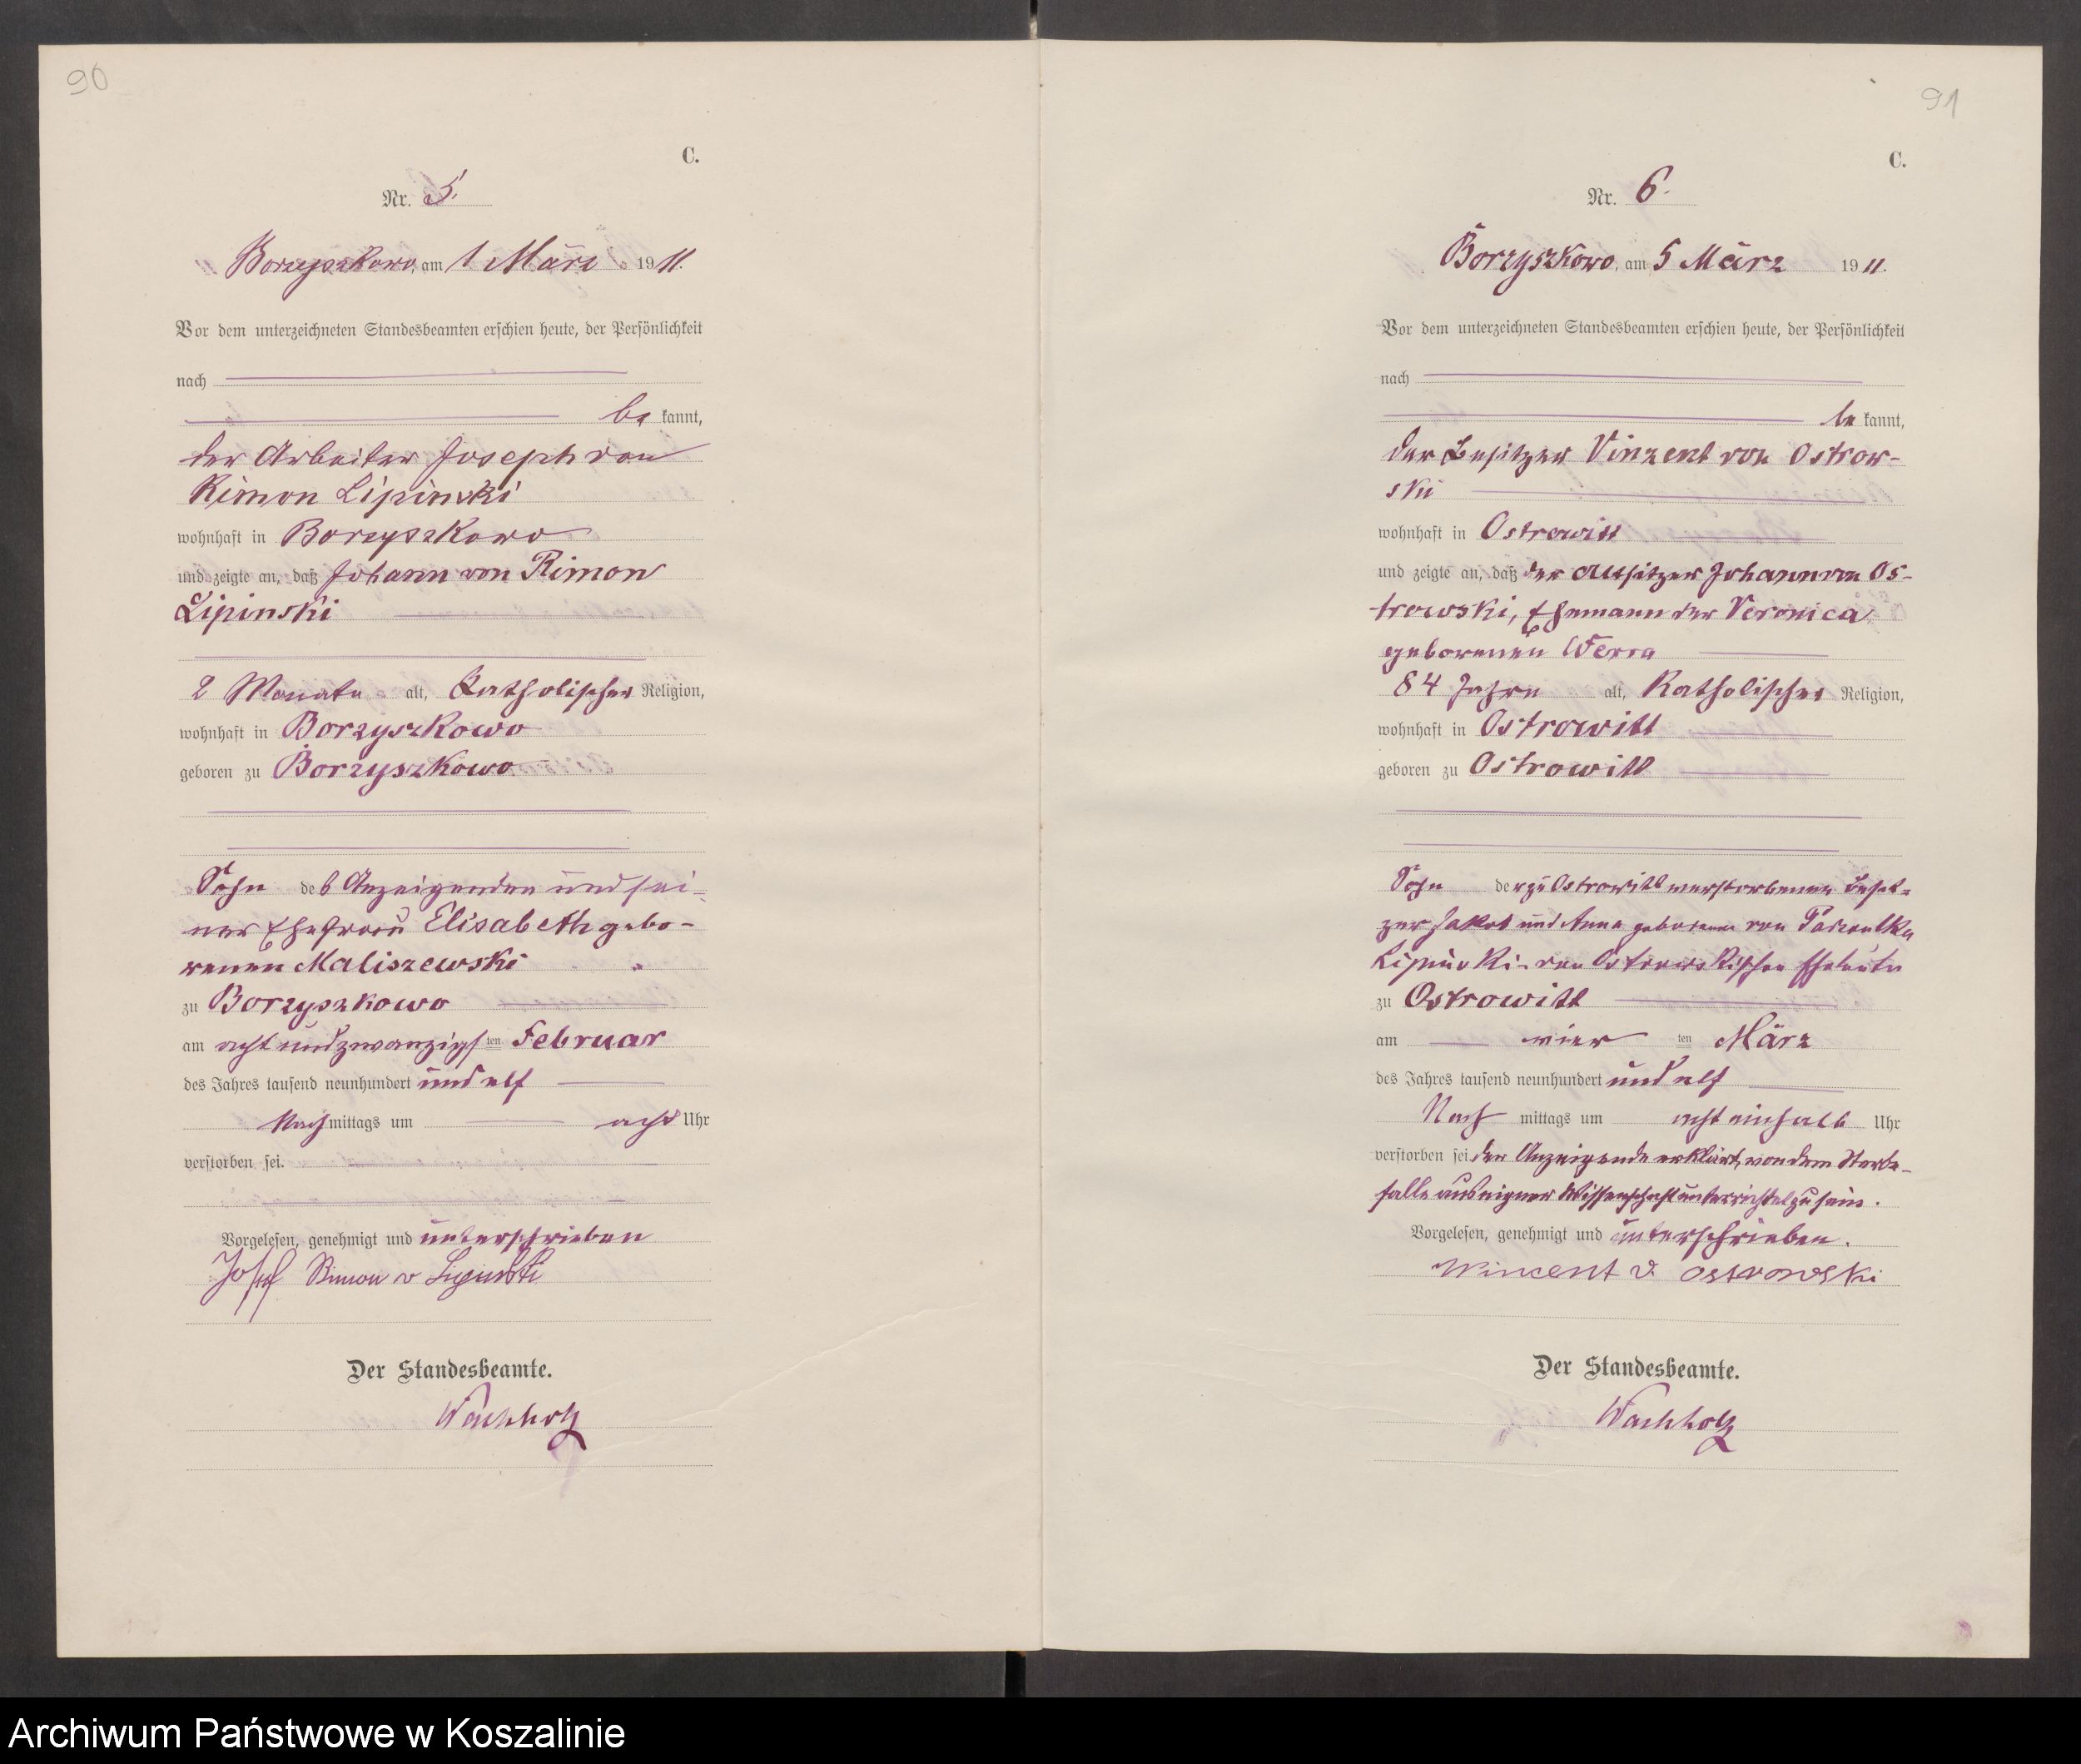 90
C.
Nr. 5.
Borzyszkowo, am 1 März 1911.
Vor dem unterzeichneten Standesbeamten erschien heute, der Persönlichkeit
nach
bekannt,
der Arbeiter Joseph von
Rimon Lipinski
wohnhaft in Borzyszkowo
und zeigte an, daß Johann von Rimon
Lipinski
2 Monate alt, Katholischer Religion,
wohnhaft in Borzyszkowo
geboren zu Borzyszkowo
Sohn des Anzeigenden und sei-
ner Ehefrau Elisabeth gebo-
renen Maliszewski
zu Borzyszkowo
am acht und zwanzigsten Februar
des Jahres tausend neunhundert und elf
Nachmittags um acht Uhr
verstorben sei.
Vorgelesen, genehmigt und unterschrieben
Josef Rimon v Lipinski
Der Standesbeamte.
Wachholz
91
C.
Nr. 6.
Borzyszkowo, am 5 März 1911.
Vor dem unterzeichneten Standesbeamten erschien heute, der Persönlichkeit
nach
bekannt,
der Besitzer Vinzent von Ostrow-
ski
wohnhaft in Ostrowitt
und zeigte an, daß der Altsitzer Johann von Os-
trowski, Ehemann der Veronica
geborenen Werra
84 Jahre alt, Katholischer Religion,
wohnhaft in Ostrowitt
geboren zu Ostrowitt
Sohn der zu Ostrowitt verstorbenen Besit-
zer Jakob und Anna geborene von
Lipinski-von Ostrowskischen Eheleute
zu Ostrowitt
am vierten März
des Jahres tausend neunhundert und elf
Nachmittags um acht einhalb Uhr
verstorben sei. der Anzeigende erklärt, von dem Sterbe-
falle aus eigner Wissenschaft unterrichtet zu sein.
Vorgelesen, genehmigt und unterschrieben.
Wincent v. Ostrowski
Der Standesbeamte.
Wachholz
Archiwum Państwowe w Koszalinie